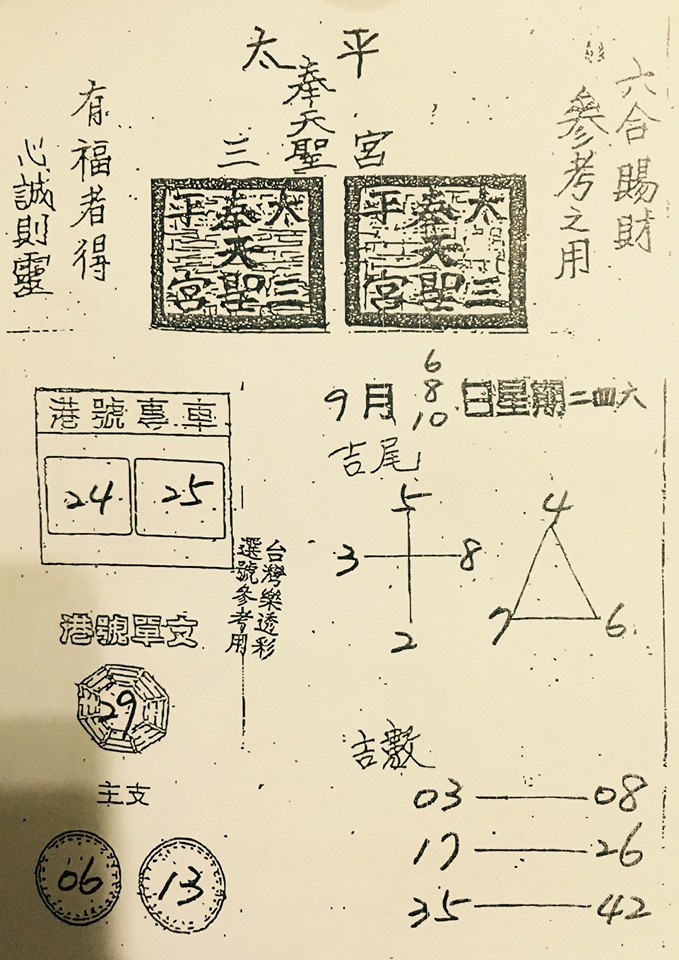 太平
奉天聖
三宮
六合賜財
參考之用
有福者得
心誠則靈
太 奉 平
天
三 聖 宮
太 奉 平
天
三 聖 宮
9月 6 8 10 日星期二四六
港號專車
24 25
吉尾
5
3 8
2
4
7 6
台灣樂透彩
選號參考用
港號單支
29
主支
06 13
吉數
03 — 08
17 — 26
35 — 42